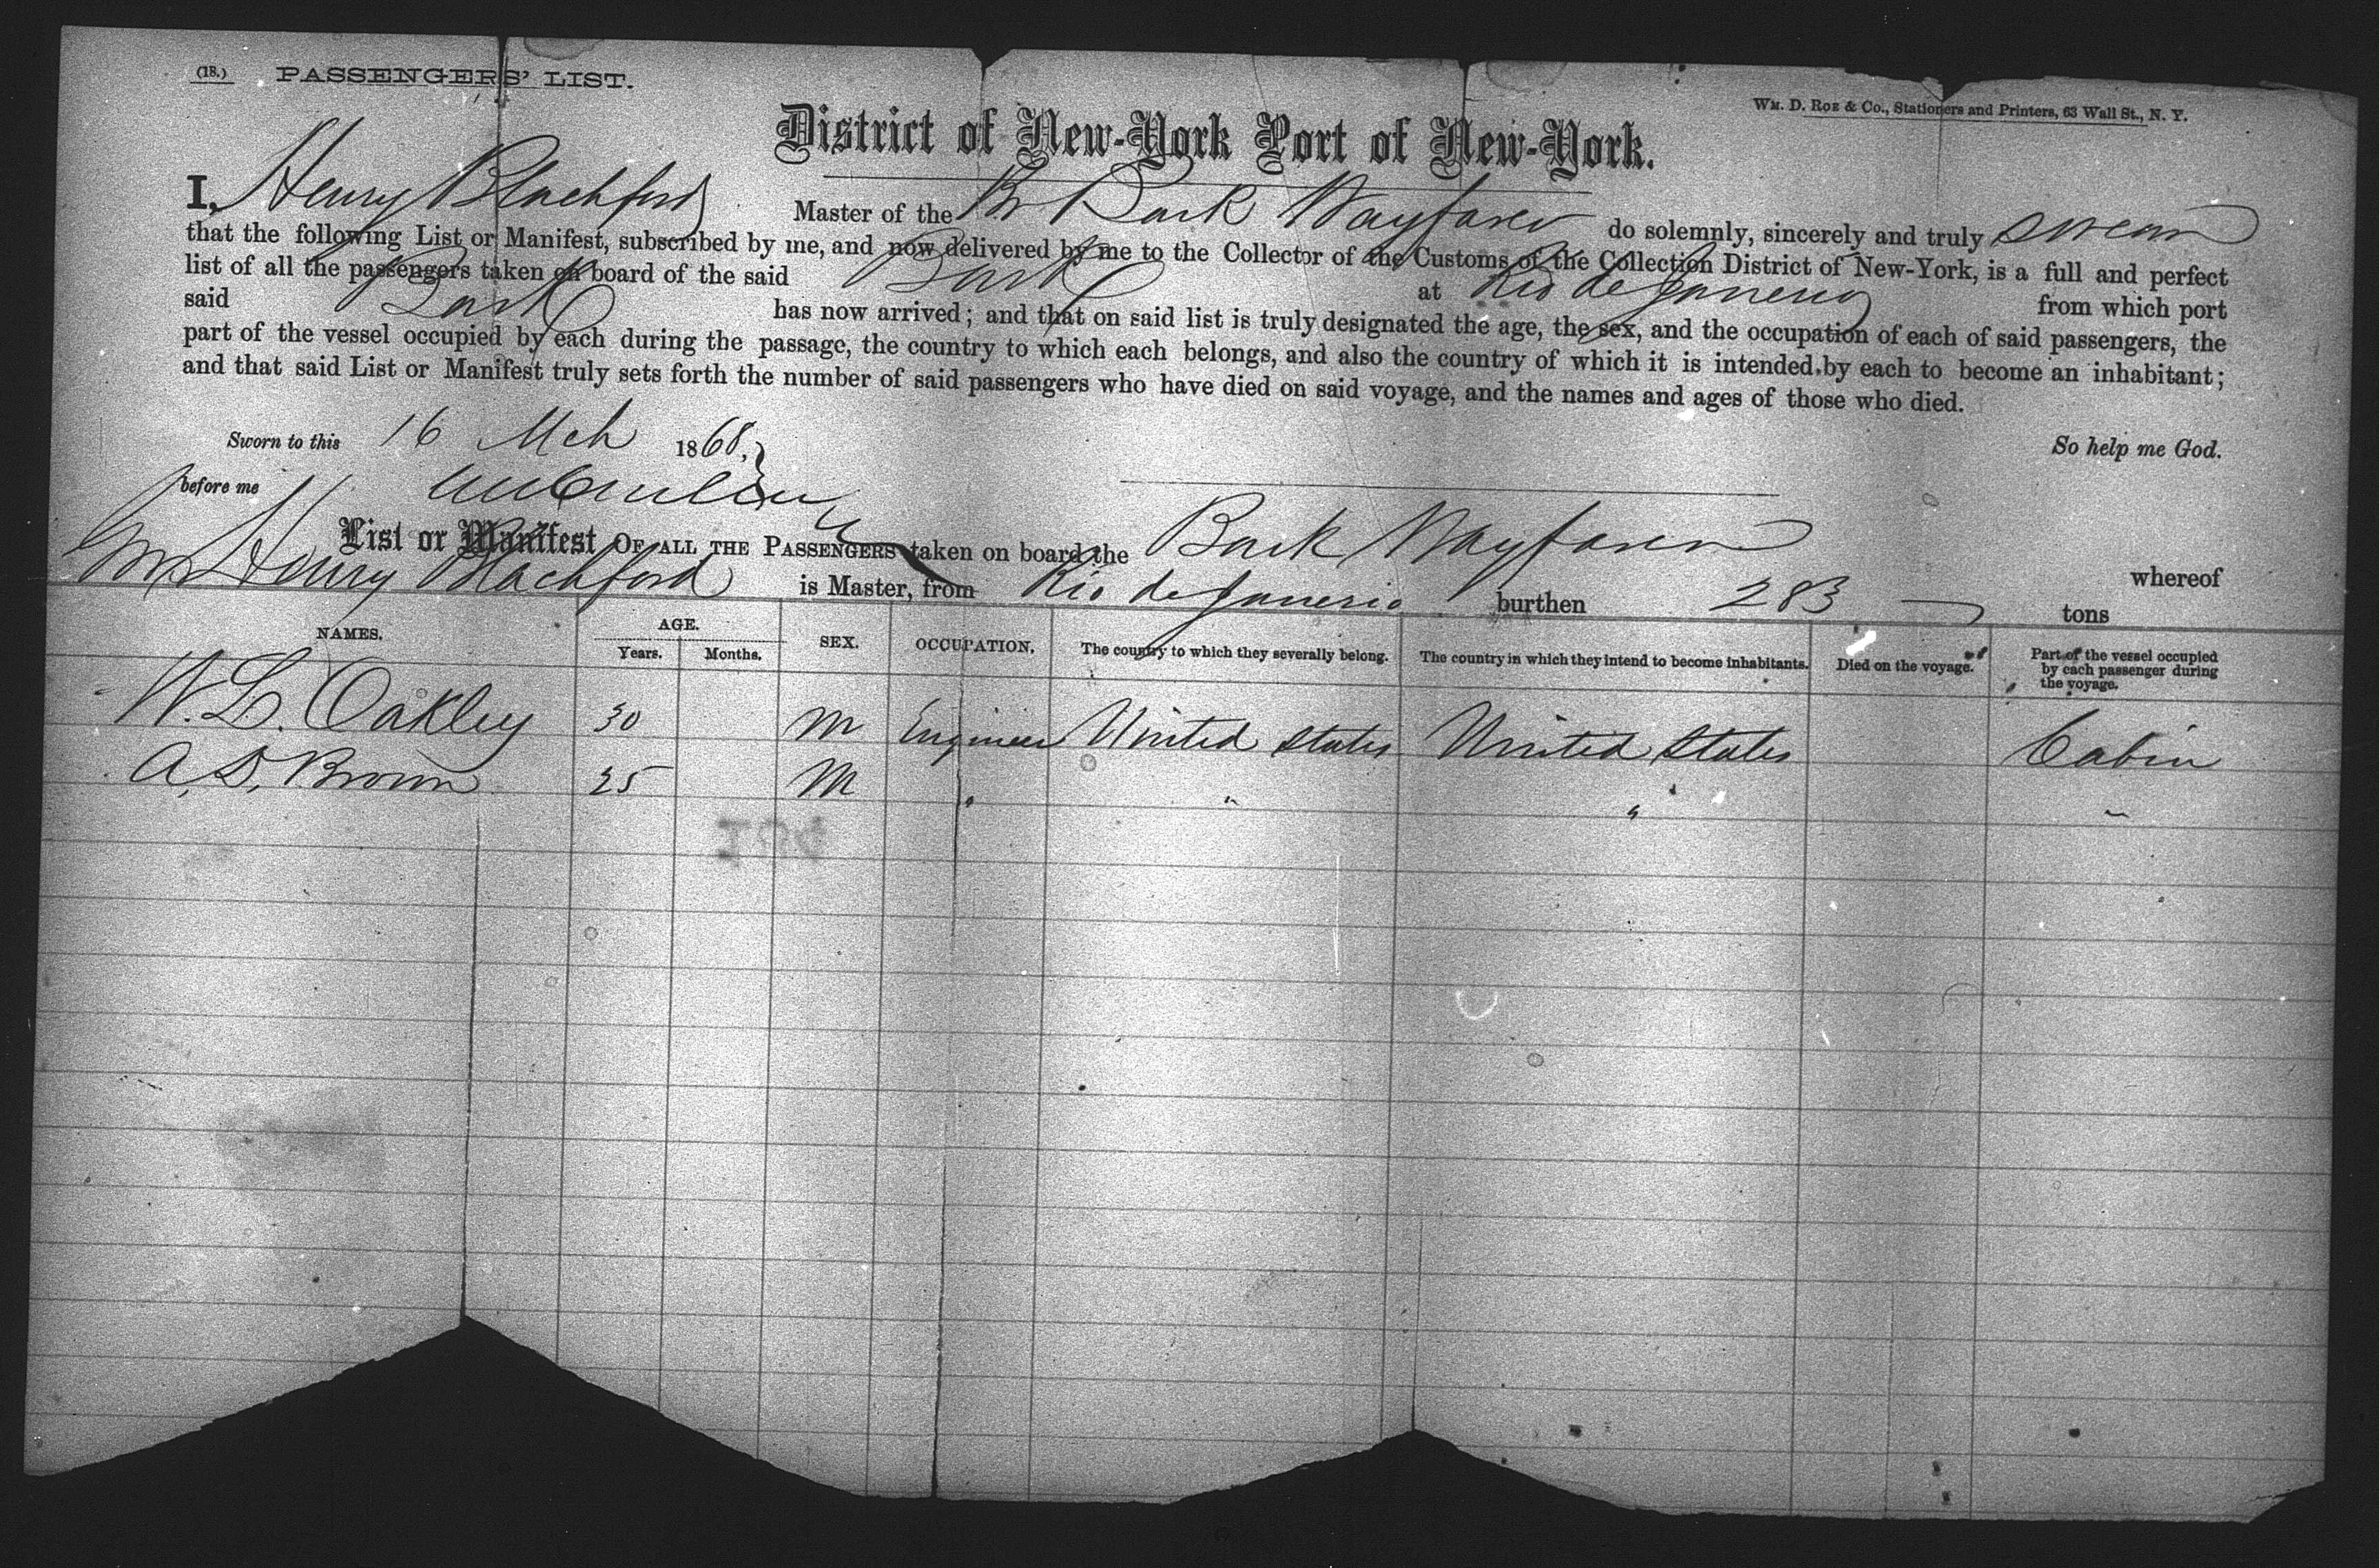 (18.) PASSENGERS' LIST.
Wm. D. Roe & Co., Stationers and Printers, 63 Wall St., N. Y.
District of New-York Port of New-York.
I, Henry Blachford Master of the Br Bark Wayfarer do solemnly, sincerely and truly swear
that the following List or Manifest, subscribed by me, and now delivered by me to the Collector of the Customs of the Collection District of New-York, is a full and perfect
list of all the passengers taken on board of the said Bark at Rio de Janerio from which port
said Bark has now arrived; and that on said list is truly designated the age, the sex, and the occupation of each of said passengers, the
part of the vessel occupied by each during the passage, the country to which each belongs, and also the country of which it is intended by each to become an inhabitant;
and that said List or Manifest truly sets forth the number of said passengers who have died on said voyage, and the names and ages of those who died.
Sworn to this 16 Mch 1868, So help me God.
before me
List or Manifest OF ALL THE PASSENGERS taken on board the Bark Wayfarer whereof
Henry Blachford is Master, from Rio de Janerio burthen 283 tons
NAMES. AGE. Years. Months. SEX. OCCUPATION. The country to which they severally belong. The country in which they intend to become inhabitants. Died on the voyage. Part of the vessel occupied by each passenger during the voyage.
W. L. Oakley 30 M Engineer United States United States Cabin
A. D. Brown 25 M " " " "